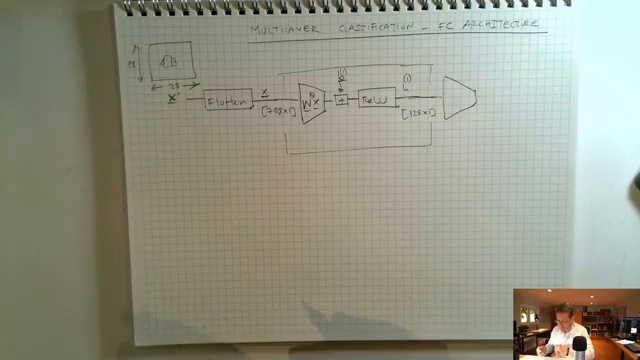 MULTILAYER CLASSIFICATION - FC ARCHITECTURE
28
28
X' Flatten x [768x1] W(1) x b(1) + ReLU h(1) [128x1]